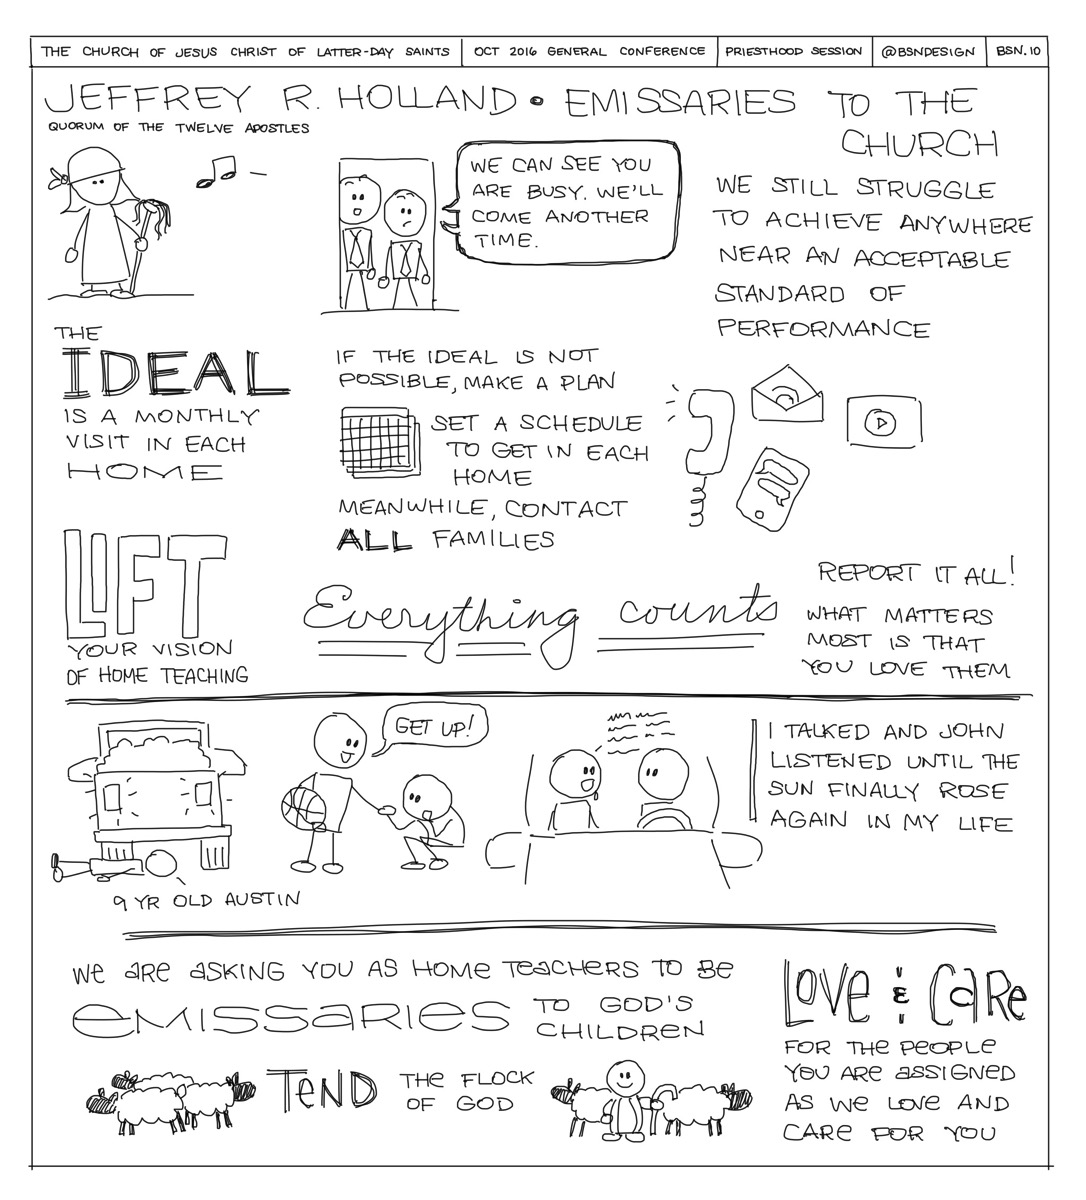 THE CHURCH OF JESUS CHRIST OF LATTER-DAY SAINTS
OCT 2016 GENERAL CONFERENCE
PRIESTHOOD SESSION
@BSNDESIGN
BSN.10
JEFFREY R. HOLLAND • EMISSARIES TO THE
CHURCH
QUORUM OF THE TWELVE APOSTLES
WE CAN SEE YOU
ARE BUSY. WE'LL
COME ANOTHER
TIME.
WE STILL STRUGGLE
TO ACHIEVE ANYWHERE
NEAR AN ACCEPTABLE
STANDARD OF
PERFORMANCE
THE
IDEAL
IS A MONTHLY
VISIT IN EACH
HOME
IF THE IDEAL IS NOT
POSSIBLE, MAKE A PLAN
SET A SCHEDULE
TO GET IN EACH
HOME
MEANWHILE, CONTACT
ALL FAMILIES
LIFT
YOUR VISION
OF HOME TEACHING
Everything counts
REPORT IT ALL!
WHAT MATTERS
MOST IS THAT
YOU LOVE THEM
GET UP!
9 YR OLD AUSTIN
I TALKED AND JOHN
LISTENED UNTIL THE
SUN FINALLY ROSE
AGAIN IN MY LIFE
We are asking you as home teachers to be
emissaries
TO GOD'S
CHILDREN
TeND
THE FLOCK
OF GOD
LOVe & CaRe
FOR THE PEOPLE
YOU ARE aSSIGNED
AS We LOVE AND
CARe FOR YOU